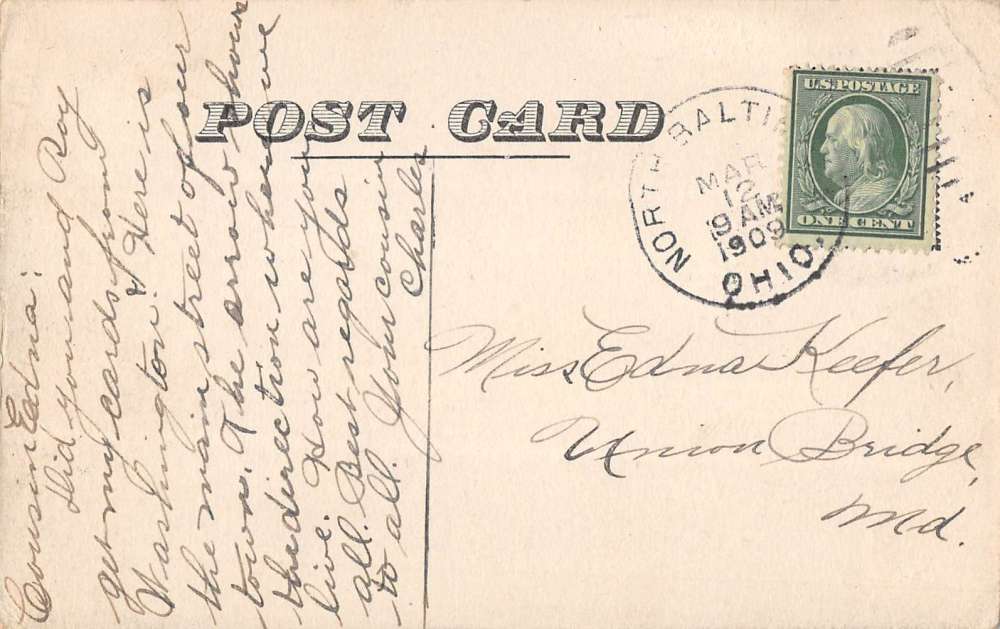 POST CARD
U.S. POSTAGE
ONE CENT
NORTH BALTI
MAR
12
9 AM
1909
OHIO.
Cousin Edna:
Did you and Roy
get my cards from
Washington? Here is
the main street of our
town. The arrow shows
the direction where we
live. How are you
all. Best regards
to all. Your cousin
Charles
Miss Edna Keefer,
Union Bridge,
Md.